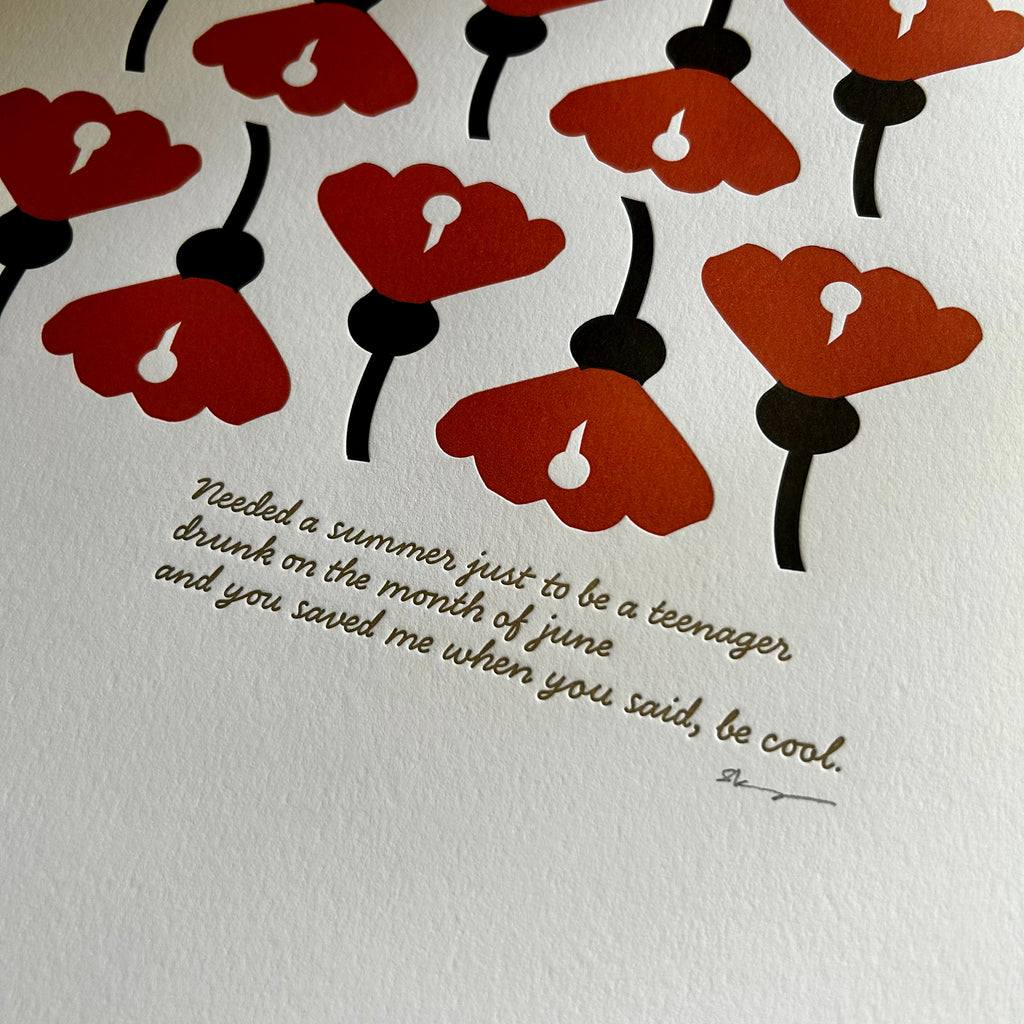 Needed a summer just to be a teenager
drunk on the month of june
and you saved me when you said, be cool.